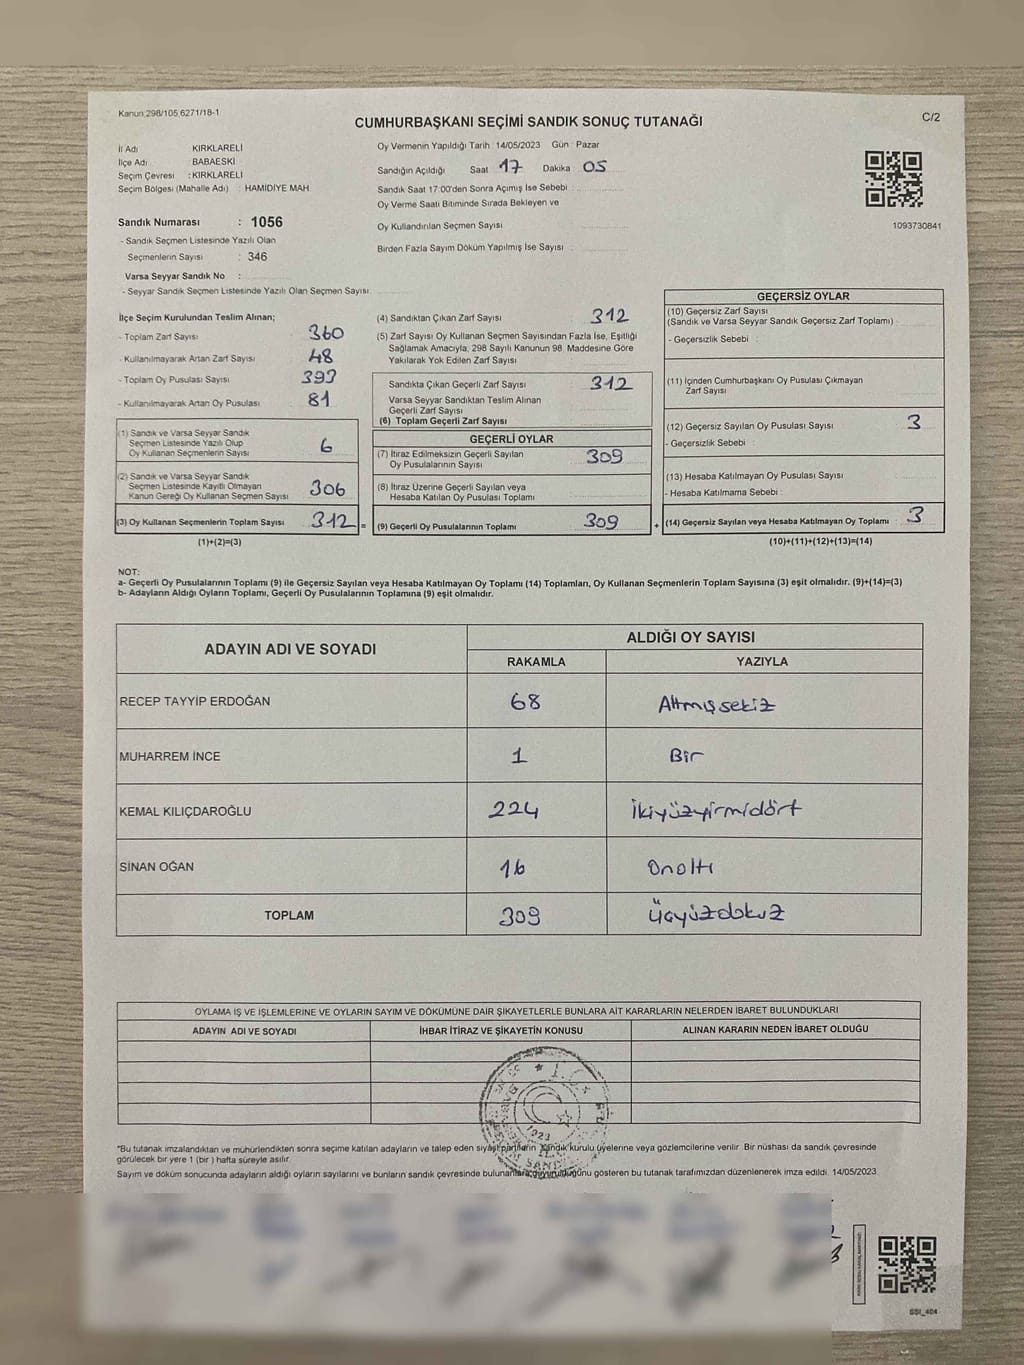 Kanun;298/105;6271/18-1
CUMHURBAŞKANI SEÇİMİ SANDIK SONUÇ TUTANAĞI
C/2
İl Adı KIRKLARELİ
İlçe Adı : BABAESKİ
Seçim Çevresi : KIRKLARELİ
Seçim Bölgesi (Mahalle Adı) : HAMİDİYE MAH
Oy Vermenin Yapıldığı Tarih : 14/05/2023 Gün : Pazar
Sandığın Açıldığı Saat 17 Dakika 05
Sandık Saat 17.00'den Sonra Açımış İse Sebebi :
Oy Verme Saati Bitiminde Sırada Bekleyen ve
Oy Kullandırılan Seçmen Sayısı
Birden Fazla Sayım Döküm Yapılmış İse Sayısı :
1093730841
Sandık Numarası : 1056
- Sandık Seçmen Listesinde Yazılı Olan
Seçmenlerin Sayısı : 346
Varsa Seyyar Sandık No :
- Seyyar Sandık Seçmen Listesinde Yazılı Olan Seçmen Sayısı
İlçe Seçim Kurulundan Teslim Alınan;
- Toplam Zarf Sayısı 360
- Kullanılmayarak Artan Zarf Sayısı 48
- Toplam Oy Pusulası Sayısı 393
- Kullanılmayarak Artan Oy Pusulası 81
(1) Sandık ve Varsa Seyyar Sandık
Seçmen Listesinde Yazılı Olup
Oy Kullanan Seçmenlerin Sayısı 6
(2) Sandık ve Varsa Seyyar Sandık
Seçmen Listesinde Kayıtlı Olmayan
Kanun Gereği Oy Kullanan Seçmen Sayısı 306
(3) Oy Kullanan Seçmenlerin Toplam Sayısı 312 =
(1)+(2)=(3)
(4) Sandıktan Çıkan Zarf Sayısı 312
(5) Zarf Sayısı Oy Kullanan Seçmen Sayısından Fazla İse, Eşitliği
Sağlamak Amacıyla, 298 Sayılı Kanunun 98. Maddesine Göre
Yakılarak Yok Edilen Zarf Sayısı
Sandıkta Çıkan Geçerli Zarf Sayısı 312
Varsa Seyyar Sandıktan Teslim Alınan
Geçerli Zarf Sayısı
(6) Toplam Geçerli Zarf Sayısı
GEÇERLİ OYLAR
(7) İtiraz Edilmeksizin Geçerli Sayılan
Oy Pusulalarının Sayısı 309
(8) İtiraz Üzerine Geçerli Sayılan veya
Hesaba Katılan Oy Pusulası Toplamı
(9) Geçerli Oy Pusulalarının Toplamı 309 +
GEÇERSİZ OYLAR
(10) Geçersiz Zarf Sayısı
(Sandık ve Varsa Seyyar Sandık Geçersiz Zarf Toplamı) :
- Geçersizlik Sebebi :
(11) İçinden Cumhurbaşkanı Oy Pusulası Çıkmayan
Zarf Sayısı
(12) Geçersiz Sayılan Oy Pusulası Sayısı 3
- Geçersizlik Sebebi :
(13) Hesaba Katılmayan Oy Pusulası Sayısı
- Hesaba Katılmama Sebebi :
(14) Geçersiz Sayılan veya Hesaba Katılmayan Oy Toplamı 3
(10)+(11)+(12)+(13)=(14)
NOT:
a- Geçerli Oy Pusulalarının Toplamı (9) ile Geçersiz Sayılan veya Hesaba Katılmayan Oy Toplamı (14) Toplamları, Oy Kullanan Seçmenlerin Toplam Sayısına (3) eşit olmalıdır. (9)+(14)=(3)
b- Adayların Aldığı Oyların Toplamı, Geçerli Oy Pusulalarının Toplamına (9) eşit olmalıdır.
ADAYIN ADI VE SOYADI ALDIĞI OY SAYISI
RAKAMLA YAZIYLA
RECEP TAYYİP ERDOĞAN 68 Altmışsekiz
MUHARREM İNCE 1 Bir
KEMAL KILIÇDAROĞLU 224 İkiyüzyirmidört
SİNAN OĞAN 16 Onaltı
TOPLAM 309 Üçyüzdokuz
OYLAMA İŞ VE İŞLEMLERİNE VE OYLARIN SAYIM VE DÖKÜMÜNE DAİR ŞİKAYETLERLE BUNLARA AİT KARARLARIN NELERDEN İBARET BULUNDUKLARI
ADAYIN ADI VE SOYADI İHBAR İTİRAZ VE ŞİKAYETİN KONUSU ALINAN KARARIN NEDEN İBARET OLDUĞU
1923
*Bu tutanak imzalandıktan ve mühürlendikten sonra seçime katılan adayların ve talep eden siyasi partilerin sandık kurulu üyelerine veya gözlemcilerine verilir. Bir nüshası da sandık çevresinde
görülecek bir yere 1 (bir ) hafta süreyle asılır.
Sayım ve döküm sonucunda adayların aldığı oyların sayılarını ve bunların sandık çevresinde bulunanlara duyurulduğunu gösteren bu tutanak tarafımızdan düzenlenerek imza edildi. 14/05/2023
SSI_404